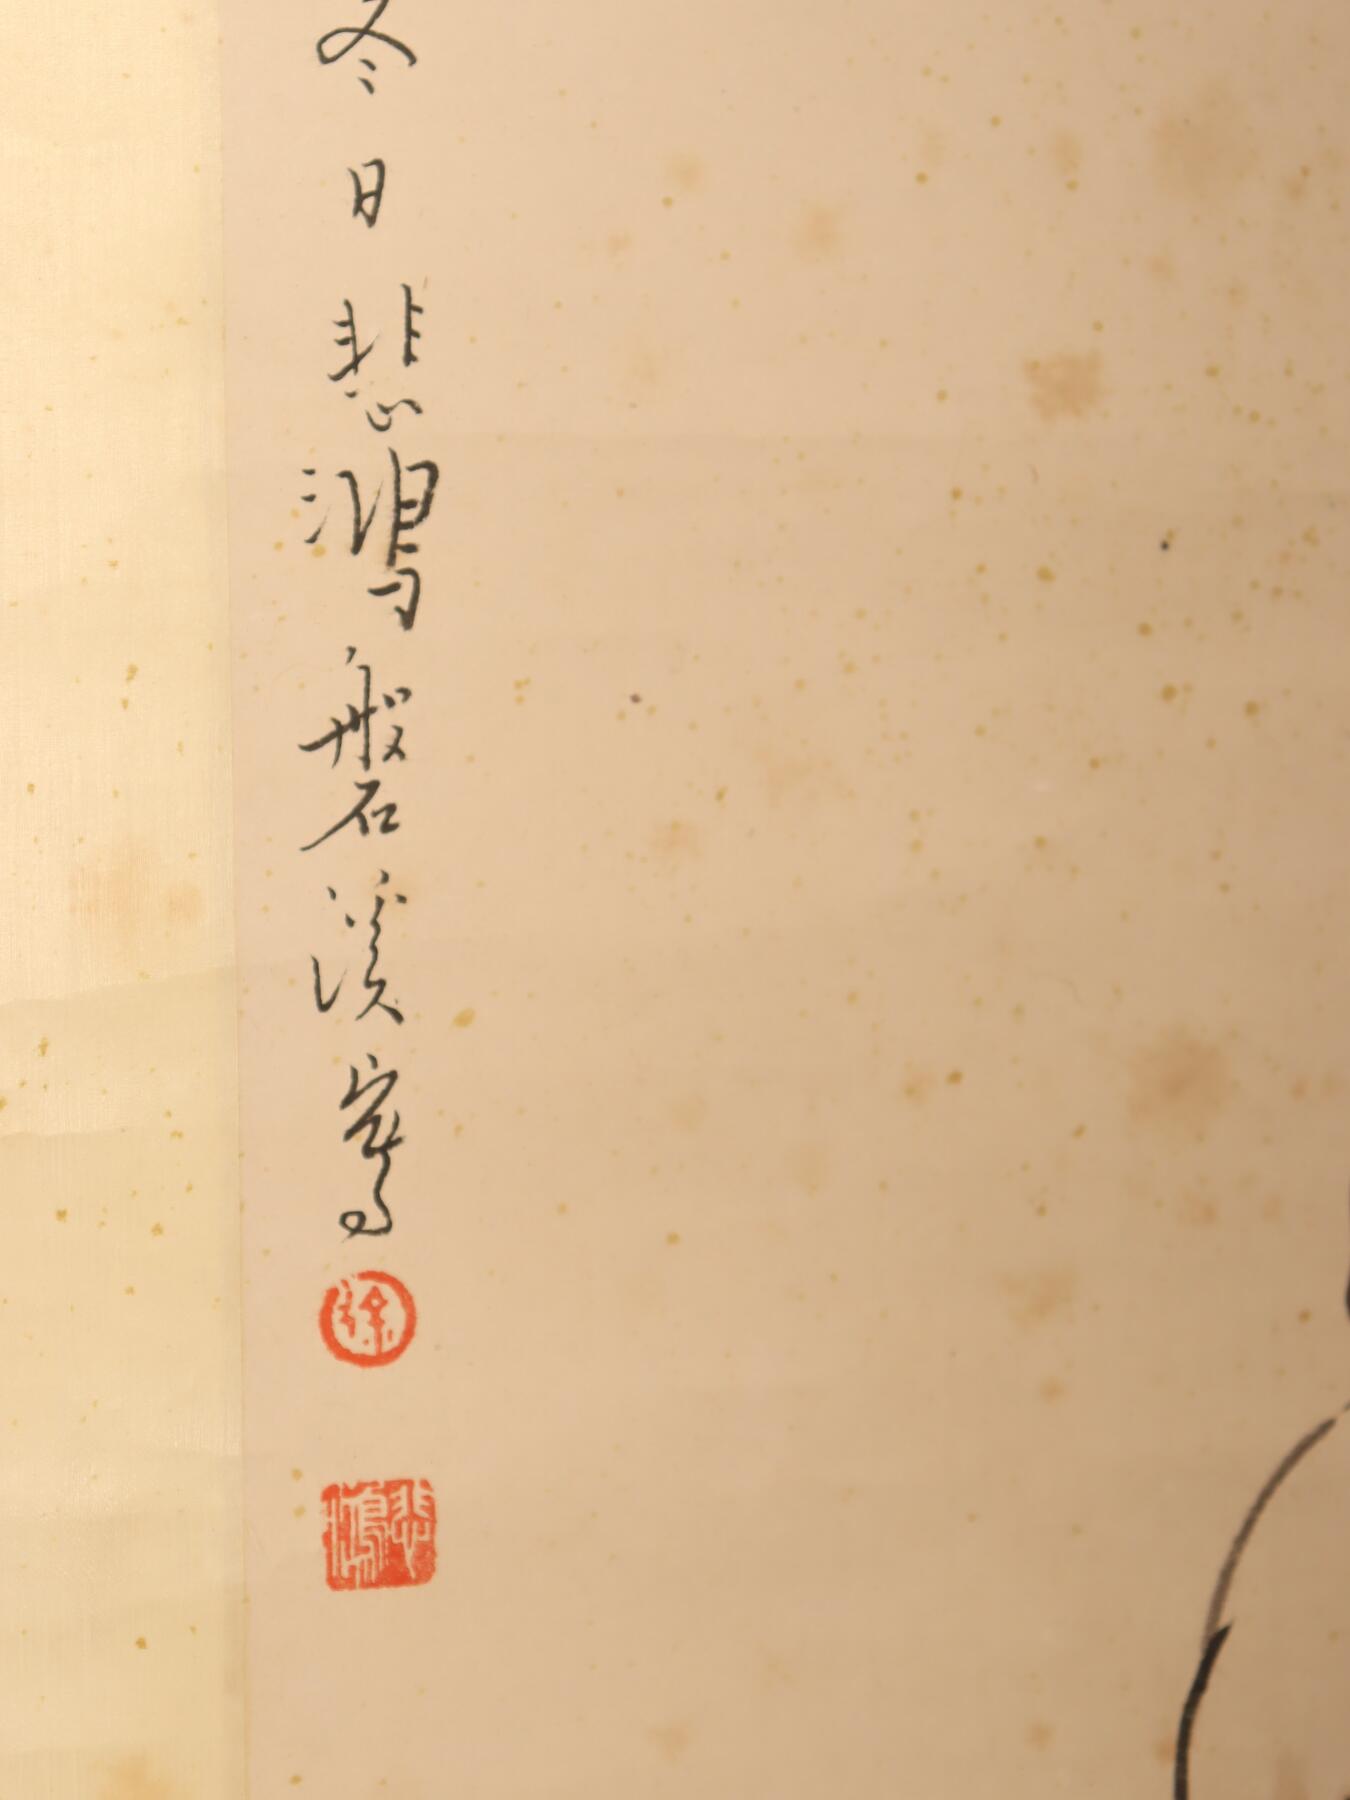 冬日悲鴻磐溪寫
徐
悲鴻